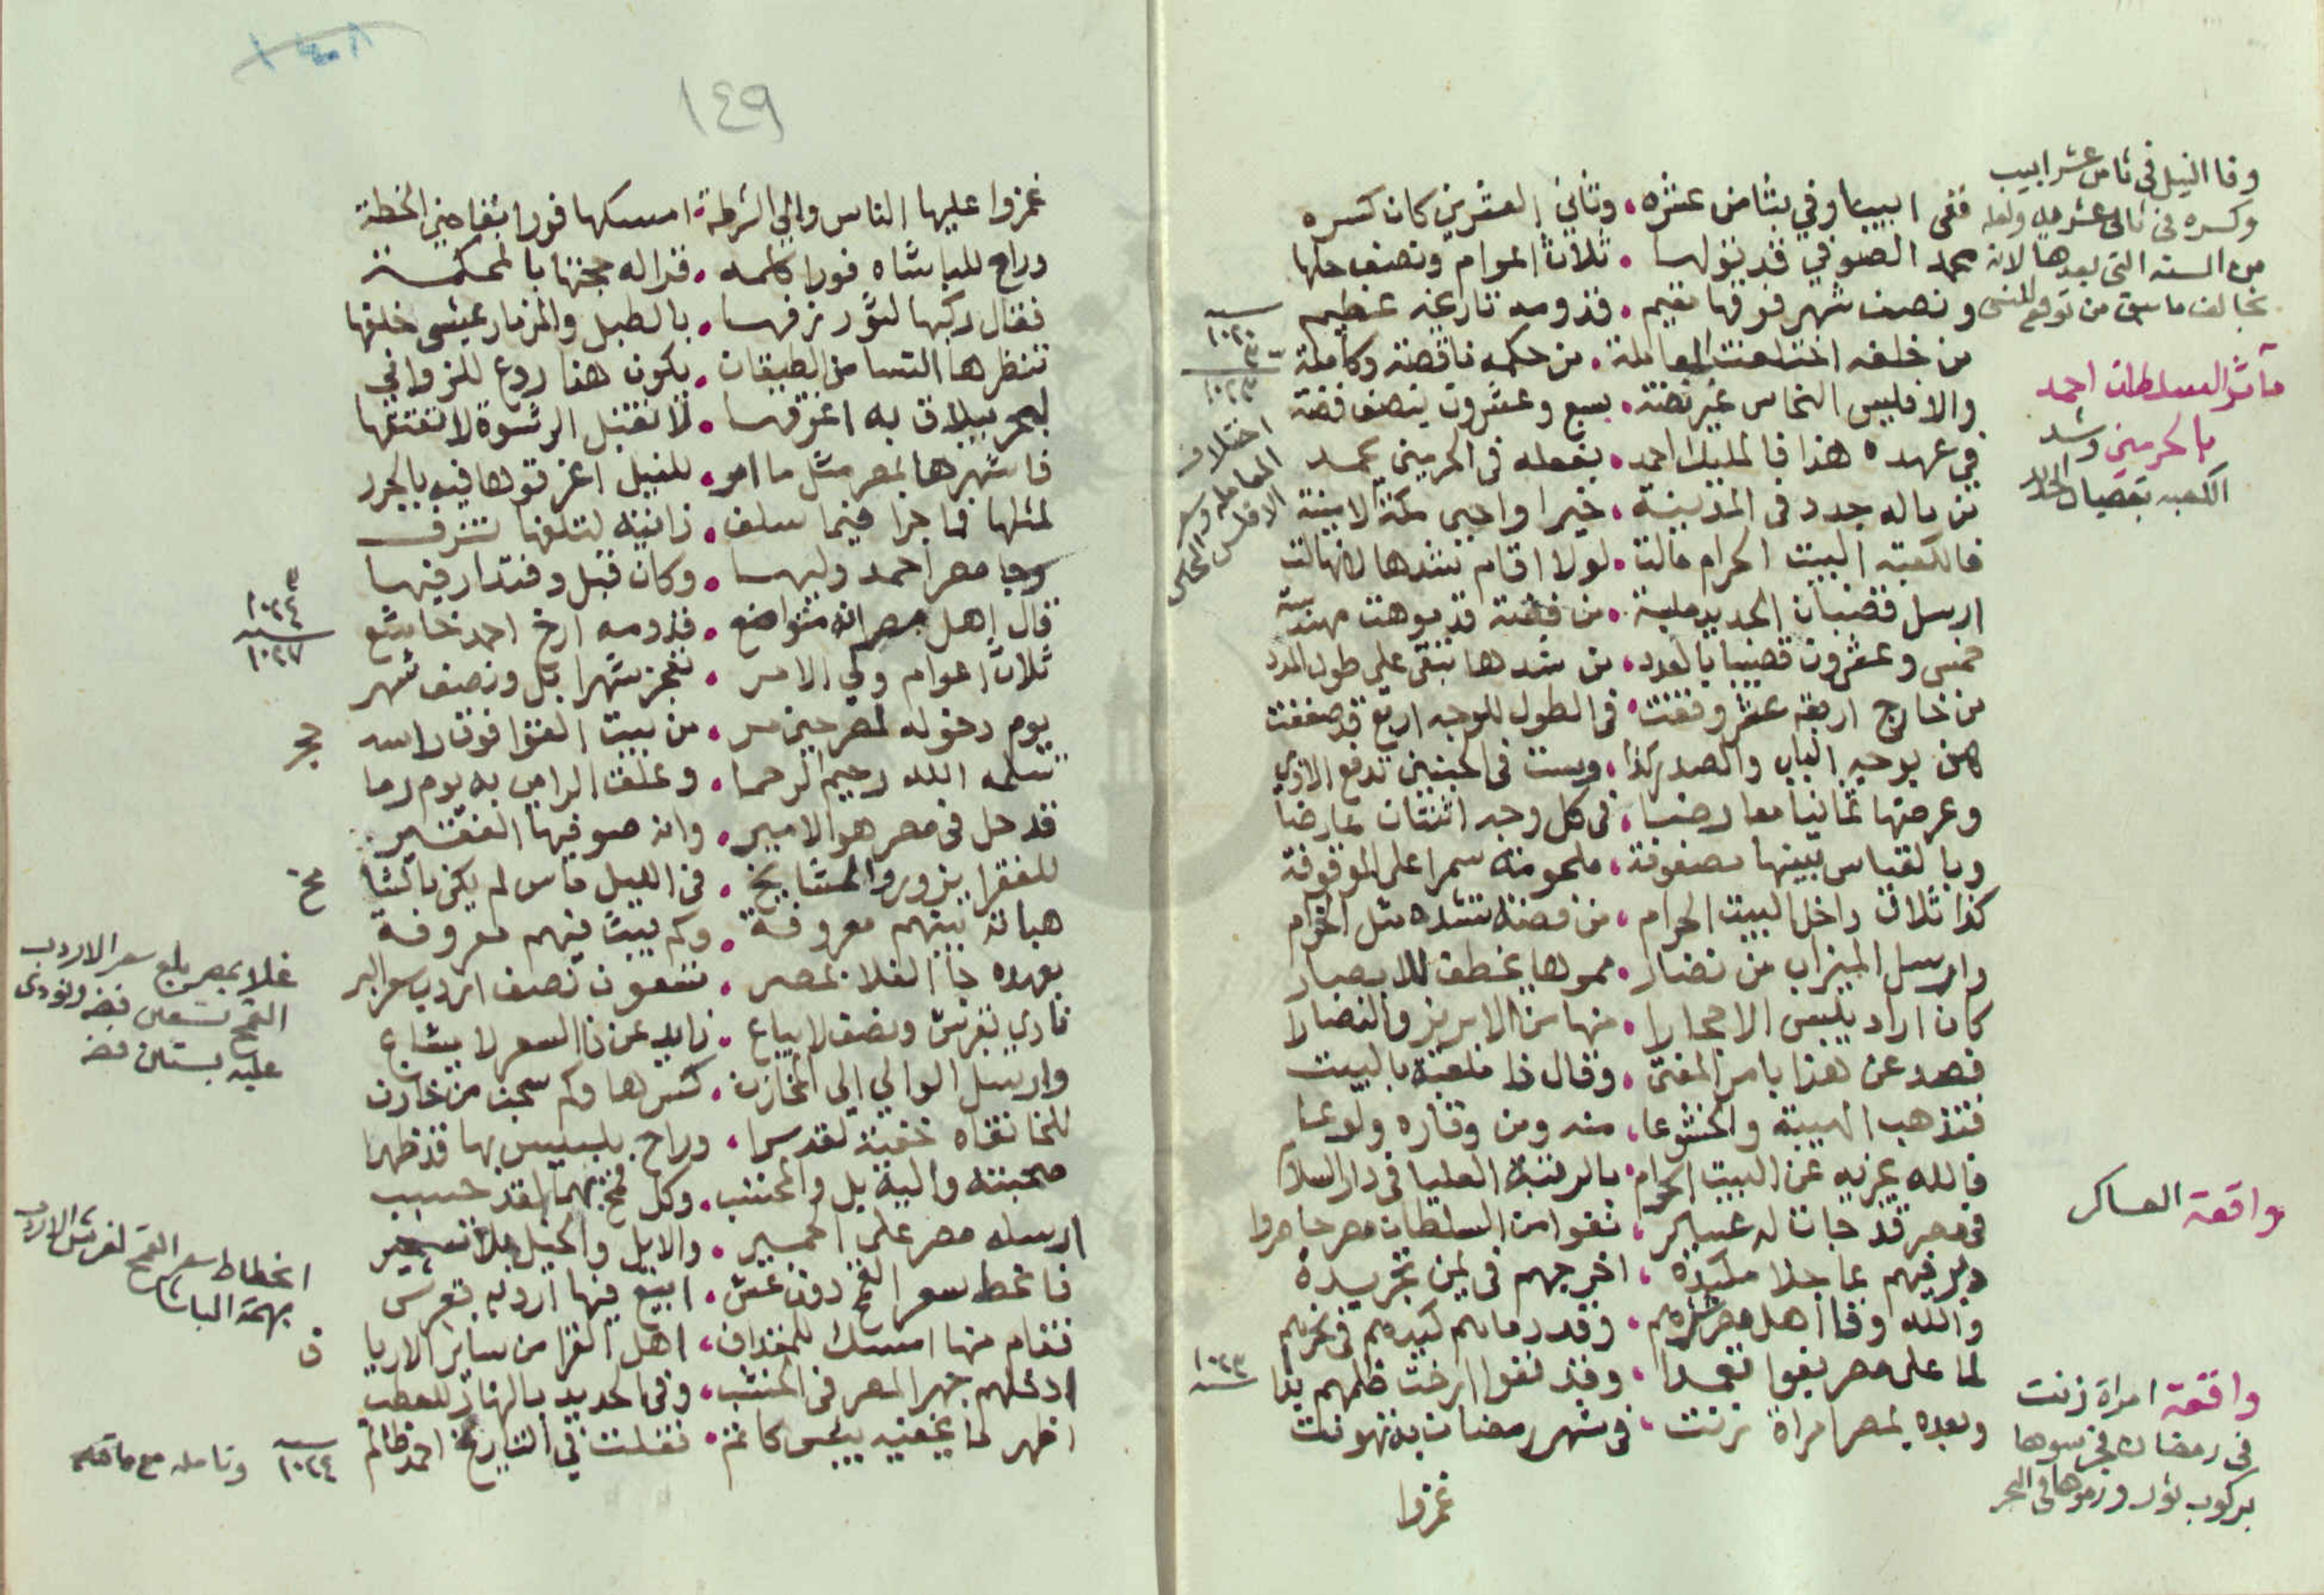 وفا النيل فى ثامن عشر ابيب
وكسره فى ثانى عشرينه ولعله
من السنه التى بعدها لانه
يخالف ما سبق من توقع المنسى
ففى ابيبا وفي بثامن عشره . وثاني العشرين كان كسره
محمد الصوفي قد تولها . ثلاث اعوام ونصف حلها
ونصف شهر فوقها مقيم . قدومه تاريخه عظيم
سنه ١٠٢٠
من خلفه اختلفت المعامله . من حكمه ناقصة وكاملة
١٠٢٣
والافليس النحاس غير فضة . بسبع وعشرون ينصف فضة
اختلاف المعامله
مآثر السلطان احمد
بالحرمين وشد
الكعبه بقضبان
في عهده هذا فالمليك احمد . بفعله فى الحرمين يحمد
من ماله جدد فى المدينة . خيرا واجبى مكة الامينة
فالكعبة البيت الحرام مالت . لولا اقام شدها لانهالت
ارسل قضبان الحديد ملبسة . من فضة قد موهت مهندسة
خمس وعشرون قضيبا بالعدد . من شدها تبقى على طول المدد
من خارج اربعة عشر وقفت . فى الطول للوجه اربع قد صففت
كمن بوجه الباب والصدر كذا . وست فى الجنبين تدفع الاذي
وعرضها ثمانيا معارضا . فى كل وجه اثنتان عارضا
وبالقياس بينها مصفوفة . ملحومة سمرا على الموقوفة
كذا ثلاث داخل البيت الحرام . من فضة تشده مثل الحزام
وارسل الميزاب من نضار . مموها يخطف للابصار
كان اراد يلبس الاحجارا . منها من الابريز والنضارا
فصد عن هذا بامر المفتى . وقال ذا ملعبة بالبيت
فتذهب الهيبة والخشوعا . منه ومن وقاره ولوعا
فالله يجزيه عن البيت الحرام . بالرتبة العليا فى دار السلام
واقعة العساكر
فى مصر قد جات له عساكر . نفوا من السلطان مصر حاصروا
دبر فيهم عاجلا مكيدة . اخرجهم فى يمن تجريده
والله وقا اهل مصر شرهم . وقد رماهم كيدهم فى نحرهم
لما على مصر بغوا تعمدا . وقد نفوا ارخت ظلمهم بدا
١٠٢٣
واقعة امراة زنت
فى رمضان فجرسوها
بركوب ثور ورموها فى البحر
وبعده بمصر امراة زنت . فى شهر رمضان به تهونت
غمزوا
١٤٩
غمزوا عليها الناس والي الشرطة . امسكها فورا بقاضى الخطة
وراح للباشاه فورا كلمه . قرا له حجتها بالمحكمة
فقال ركبها لثور زفها . بالطبل والمزمار يمشى خلفها
تنظرها النسا من الطبقان . يكون هذا روع للزواني
لبحر بيلاق به اغرقها . لا تقبل الرشوة لا تعتقها
فاشهرها بمصر مثل ما امر . للنيل اغرقوها فيه بالحرر
لمثلها ما جرا فيما سلف . زانية لتلفها تنزف
وجا مصر احمد وليها . وكان قبل دفتدار فيها
سنه ١٠٢٤
قال اهل مصر انه متواضع . قدومه ارخ احمد خاشع
سنه ١٠٢٧
ثلاث اعوام ولي الامر . تعجز شهرا بل ونصف شهر
يوم دخوله لمصر حين مر . من بيت الفوا فوق راسه حجر
سلمه الله رحيم الرحما . وعلقت الراس به يوم رما
قد حل فى مصر هو الامير . وانه صوفيها الفقير
للفقرا يزور والمشايخ . فى الليل ماس لم يكن بالشامخ
هباته بينهم معروفة . وكم بيت فيهم معروفة
غلا بمصر بلغ سعر الاردب
القمح تسعين فضه ونودى
عليه بستين فضه
بعهده جا الغلا بمصر . تسعون نصف اردب سعر البر
نادي بقرش ونصف لا يباع . زايد عن ذا السعر لا يشاع
وارسل الوالي الى المخازن . كسرها وكم سجن من خازن
للخانقاه خفية لقد سرا . وراح بلبيس بها قد ظهرا
صحبته والية بل والمحتسب . وكل قمح بهما لقد حسب
ارسله مصر على الحمير . والابل والخيل بلا تسعير
انحطاط سعر القمح لغرش الاردب
بهمة الباشا
فانحط سعر القمح دون غش . ابيع فيها اردب بقرش
فقام منها امسك للمفذاف . اهل القرا من ساير الارياف
ادخلهم جهرا لمصر فى الخشب . وفى الحديد بالنهار للعطب
اظهر ما يخفيه بيس كاتم . نقلت في التاريخ احمد ظالم
سنه ١٠٢٤ وتامله مع ما قبله